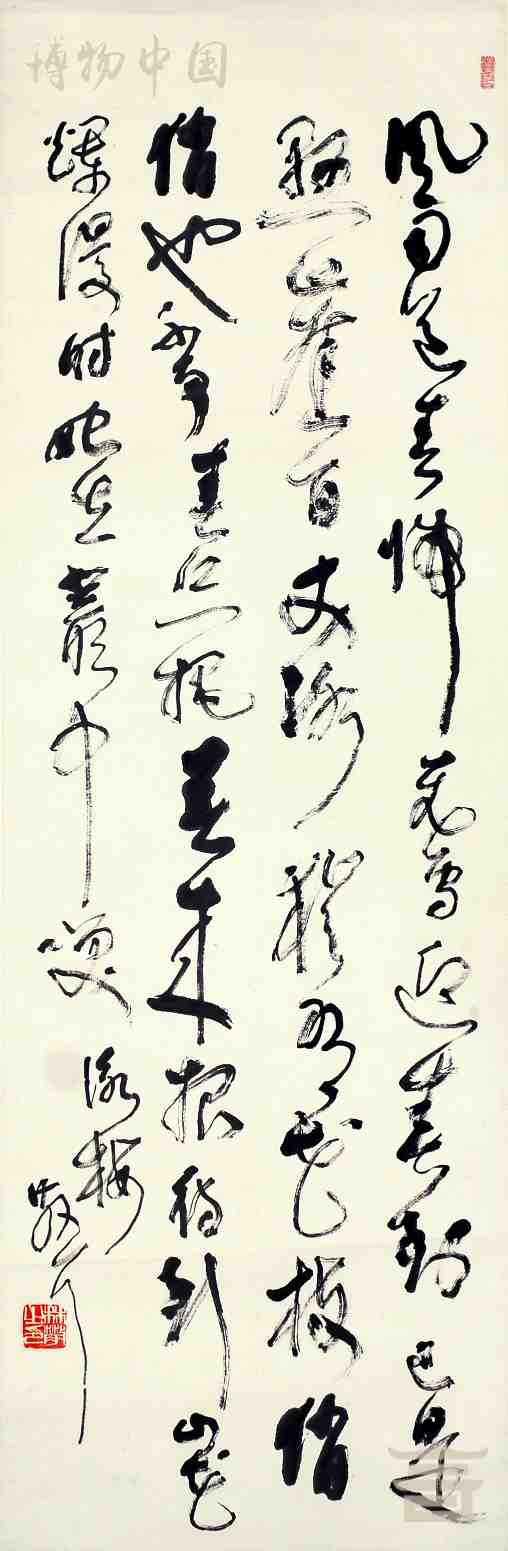 博物中国
風雨送春歸飛雪迎春到已是
懸崖百丈冰猶有花枝俏
俏也不爭春只把春來報待到山花
爛漫时她在叢中笑
詠梅
散耳
林散之印